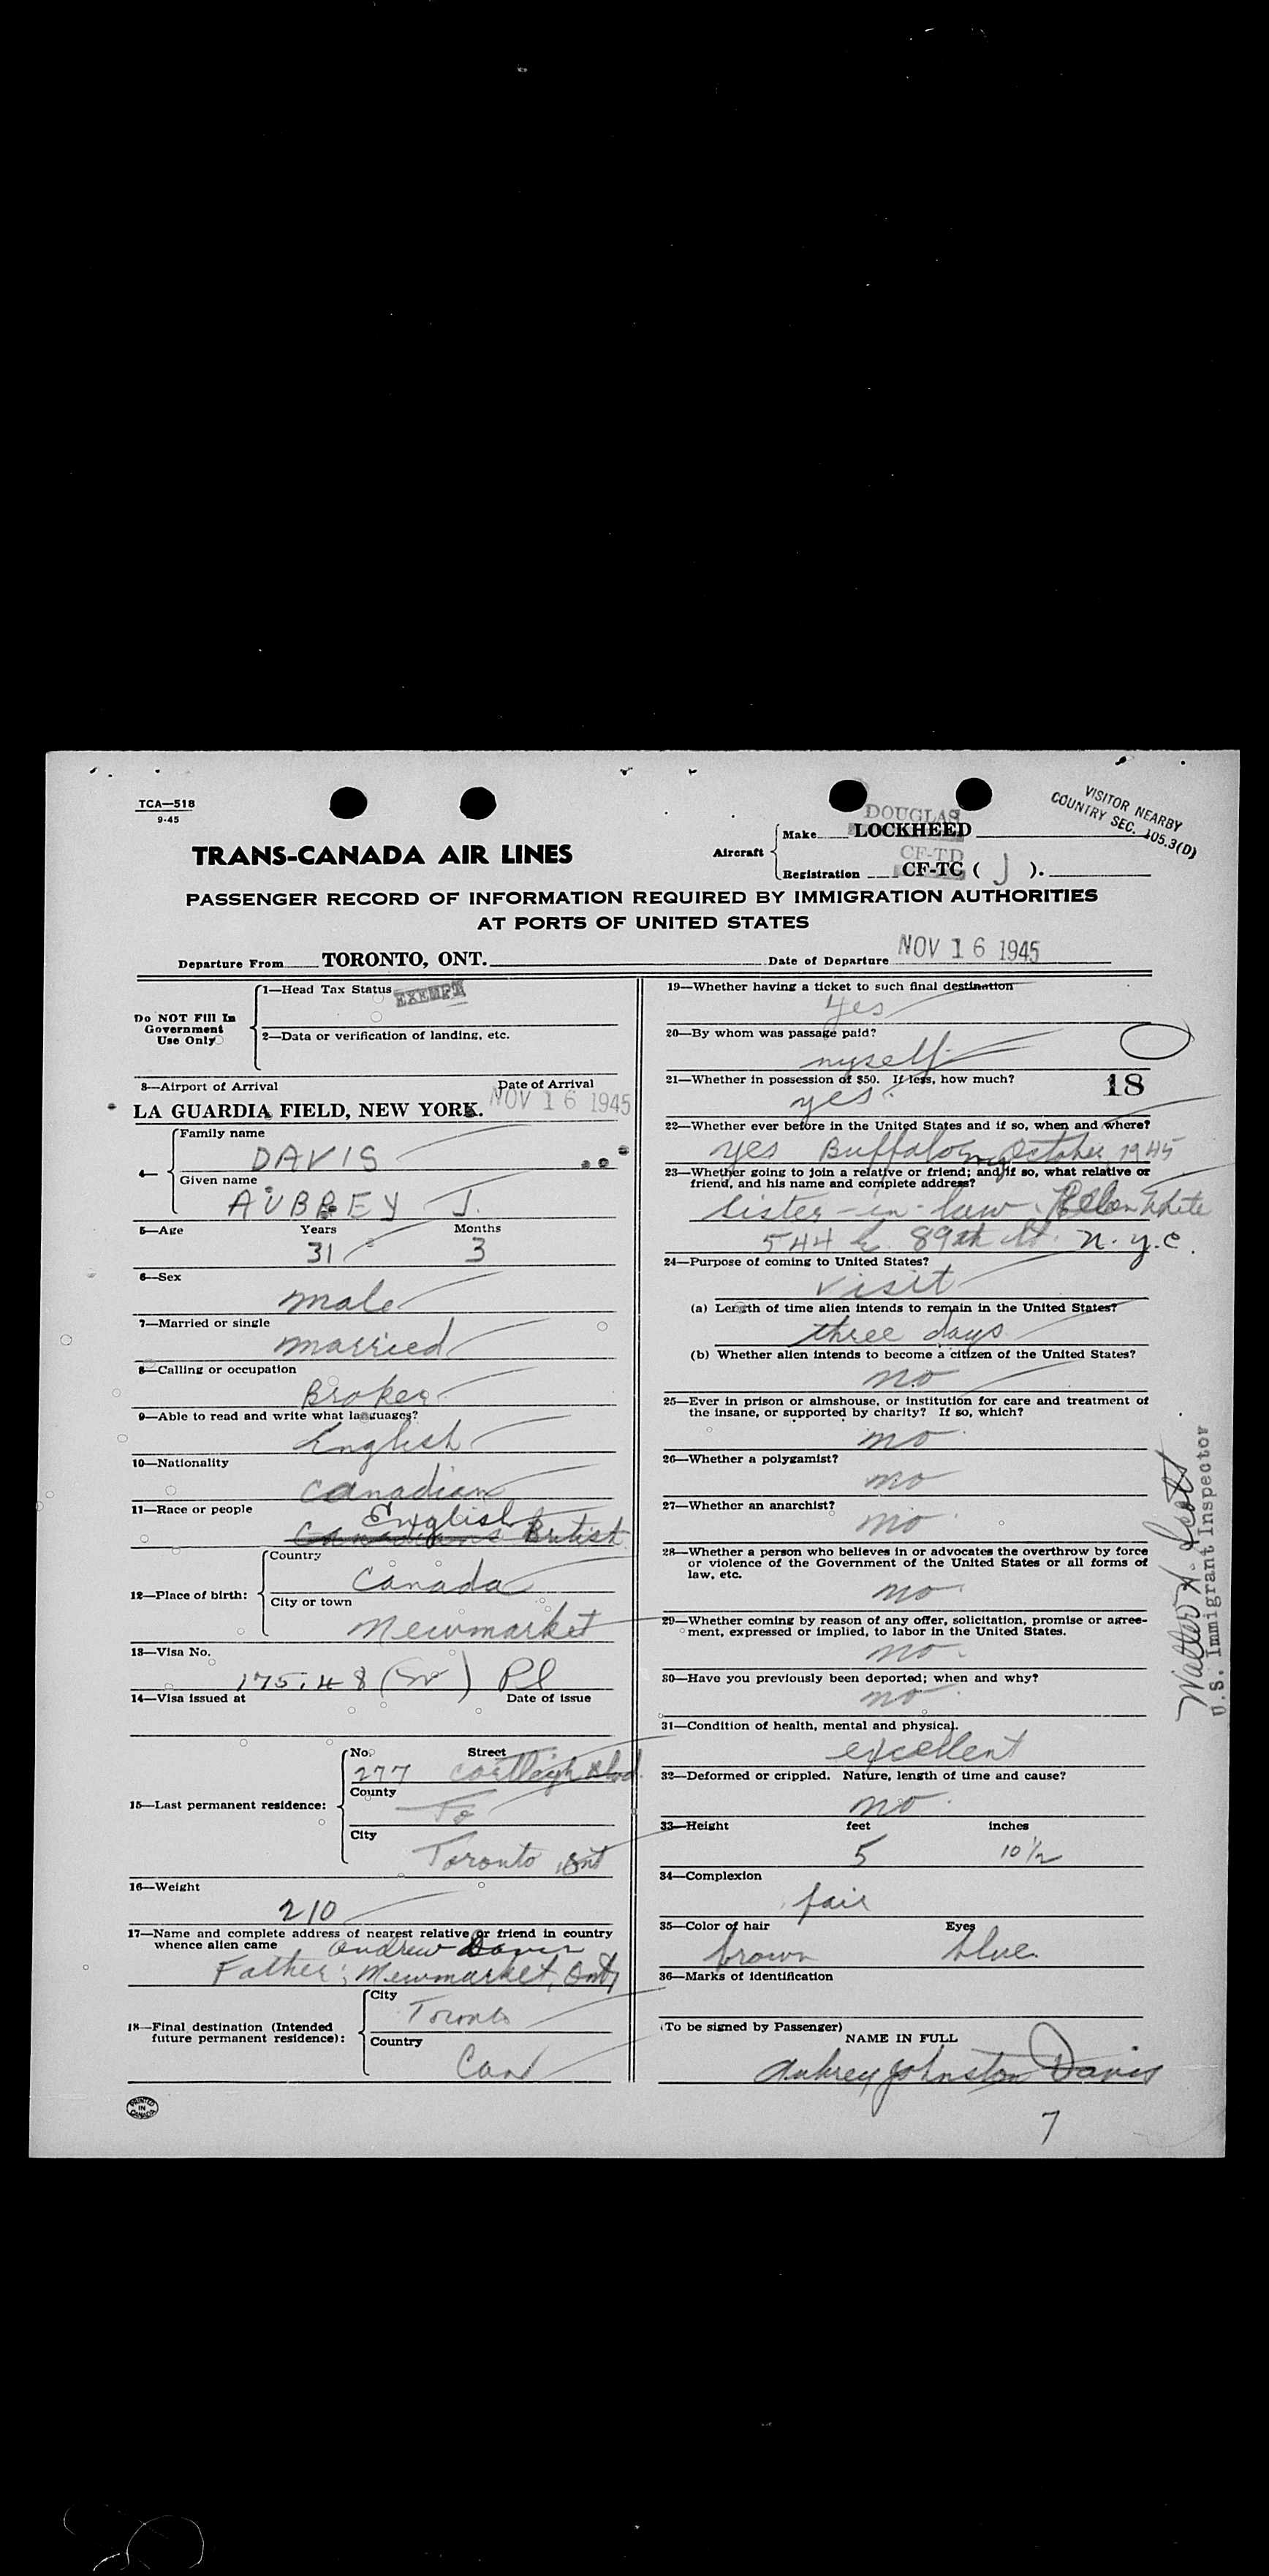 TCA—518
9-45
VISITOR NEARBY
COUNTRY SEC. 105.3(D)
TRANS-CANADA AIR LINES
Aircraft
DOUGLAS
Make LOCKHEED
CF-TD
Registration CF-TC ( J ).
PASSENGER RECORD OF INFORMATION REQUIRED BY IMMIGRATION AUTHORITIES
AT PORTS OF UNITED STATES
Departure From TORONTO, ONT. Date of Departure NOV 16 1945
Do NOT Fill In
Government
Use Only
1—Head Tax Status EXEMPT
2—Data or verification of landing, etc.
3—Airport of Arrival Date of Arrival
LA GUARDIA FIELD, NEW YORK. NOV 16 1945
4—
Family name
DAVIS
Given name
AUBREY J.
5—Age Years Months
31 3
6—Sex
male
7—Married or single
married
8—Calling or occupation
Broker
9—Able to read and write what languages?
English
10—Nationality
Canadian
11—Race or people
English
Canadians British
12—Place of birth:
Country
Canada
City or town
Newmarket
13—Visa No.
175.48 ( )
14—Visa issued at Date of issue
15—Last permanent residence:
No. Street
277 Blvd.
County
To
City
Toronto Ont
16—Weight
210
17—Name and complete address of nearest relative or friend in country
whence alien came Andrew Davis
Father; Newmarket, Ont
18—Final destination (Intended
future permanent residence):
City
Toronto
Country
Can
19—Whether having a ticket to such final destination
Yes
20—By whom was passage paid?
myself
21—Whether in possession of $50. If less, how much?
yes. 18
22—Whether ever before in the United States and if so, when and where?
yes Buffalo ny October, 1945
23—Whether going to join a relative or friend; and if so, what relative or
friend, and his name and complete address?
Sister-in-law Helen White
544 E. 89th St. N.Y.C.
24—Purpose of coming to United States?
visit
(a) Length of time alien intends to remain in the United States?
three days
(b) Whether alien intends to become a citizen of the United States?
no
25—Ever in prison or almshouse, or institution for care and treatment of
the insane, or supported by charity? If so, which?
no
26—Whether a polygamist?
no
27—Whether an anarchist?
no
28—Whether a person who believes in or advocates the overthrow by force
or violence of the Government of the United States or all forms of
law, etc.
no
29—Whether coming by reason of any offer, solicitation, promise or agree-
ment, expressed or implied, to labor in the United States.
no.
30—Have you previously been deported; when and why?
no
31—Condition of health, mental and physical.
excellent
32—Deformed or crippled. Nature, length of time and cause?
no.
33—Height feet inches
5 10½
34—Complexion
fair
35—Color of hair Eyes
brown blue
36—Marks of identification
(To be signed by Passenger)
NAME IN FULL
Aubrey Johnston Davis
7
Walter A. Scott
U.S. Immigrant Inspector
PRINTED
IN
CANADA